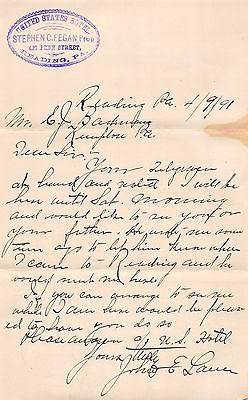 UNITED STATES HOTEL
STEPHEN C. FEGAN Prop
PENN STREET,
READING, PA.
Reading Pa. 4/9/91
Mr. C. J.
Kempton Pa
Dear Sir:
Your Telegram
at hand and noted I will be
here until Sat. morning
and would like to see you or
your father. He
ago to let him know when
I came to Reading and he
would meet me here.
If you can arrange to see me
while I am here would be pleased
to have you do so
Please answer c/o U.S. Hotel
Yours Truly
John E Lauer